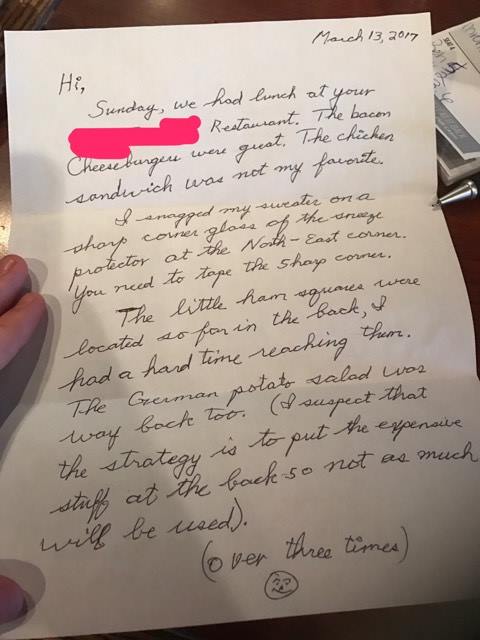 March 13, 2017
Hi,
Sunday, we had lunch at your
Restaurant. The bacon
Cheeseburgers were great. The chicken
sandwich was not my favorite.
I snagged my sweater on a
sharp corner glass of the sneeze
protector at the North-East corner.
You need to tape the sharp corner.
The little ham squares were
located so far in the back, I
had a hard time reaching them.
The German potato salad was
way back too. (I suspect that
the strategy is to put the expensive
stuff at the back so not as much
will be used).
(over three times)